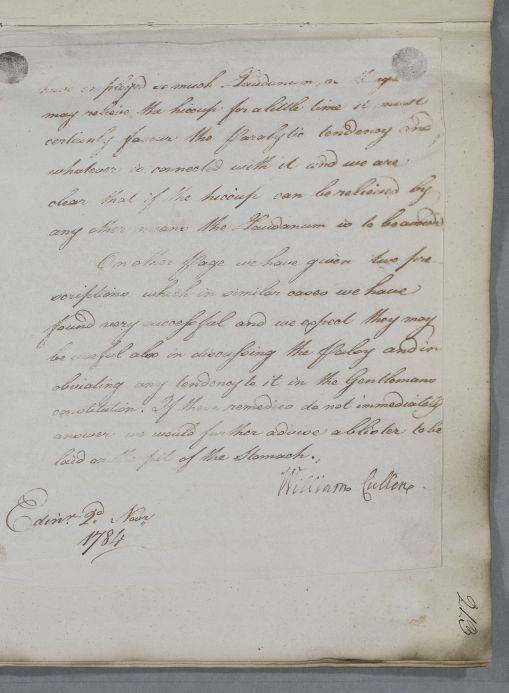 so much Laudanum, 
may relieve the hiccup for a little time it must
certainly favour the Paralytic tendency and
whatever is connected with it and we are
clear that if the hiccup can be relieved by
any other means the Laudanum is to be avoided
On other Page we have given two pre
scriptions which in similar cases we have
found very successful and we expect they may
be useful also in discussing the Palsy and in
obviating any tendency to it in the Gentlemans
constitution. If these remedies do not immediately
answer we would further advise a blister to be
laid on the pit of the Stomach.
William Cullen.
Edinr. 2d. Novr.
1784
213